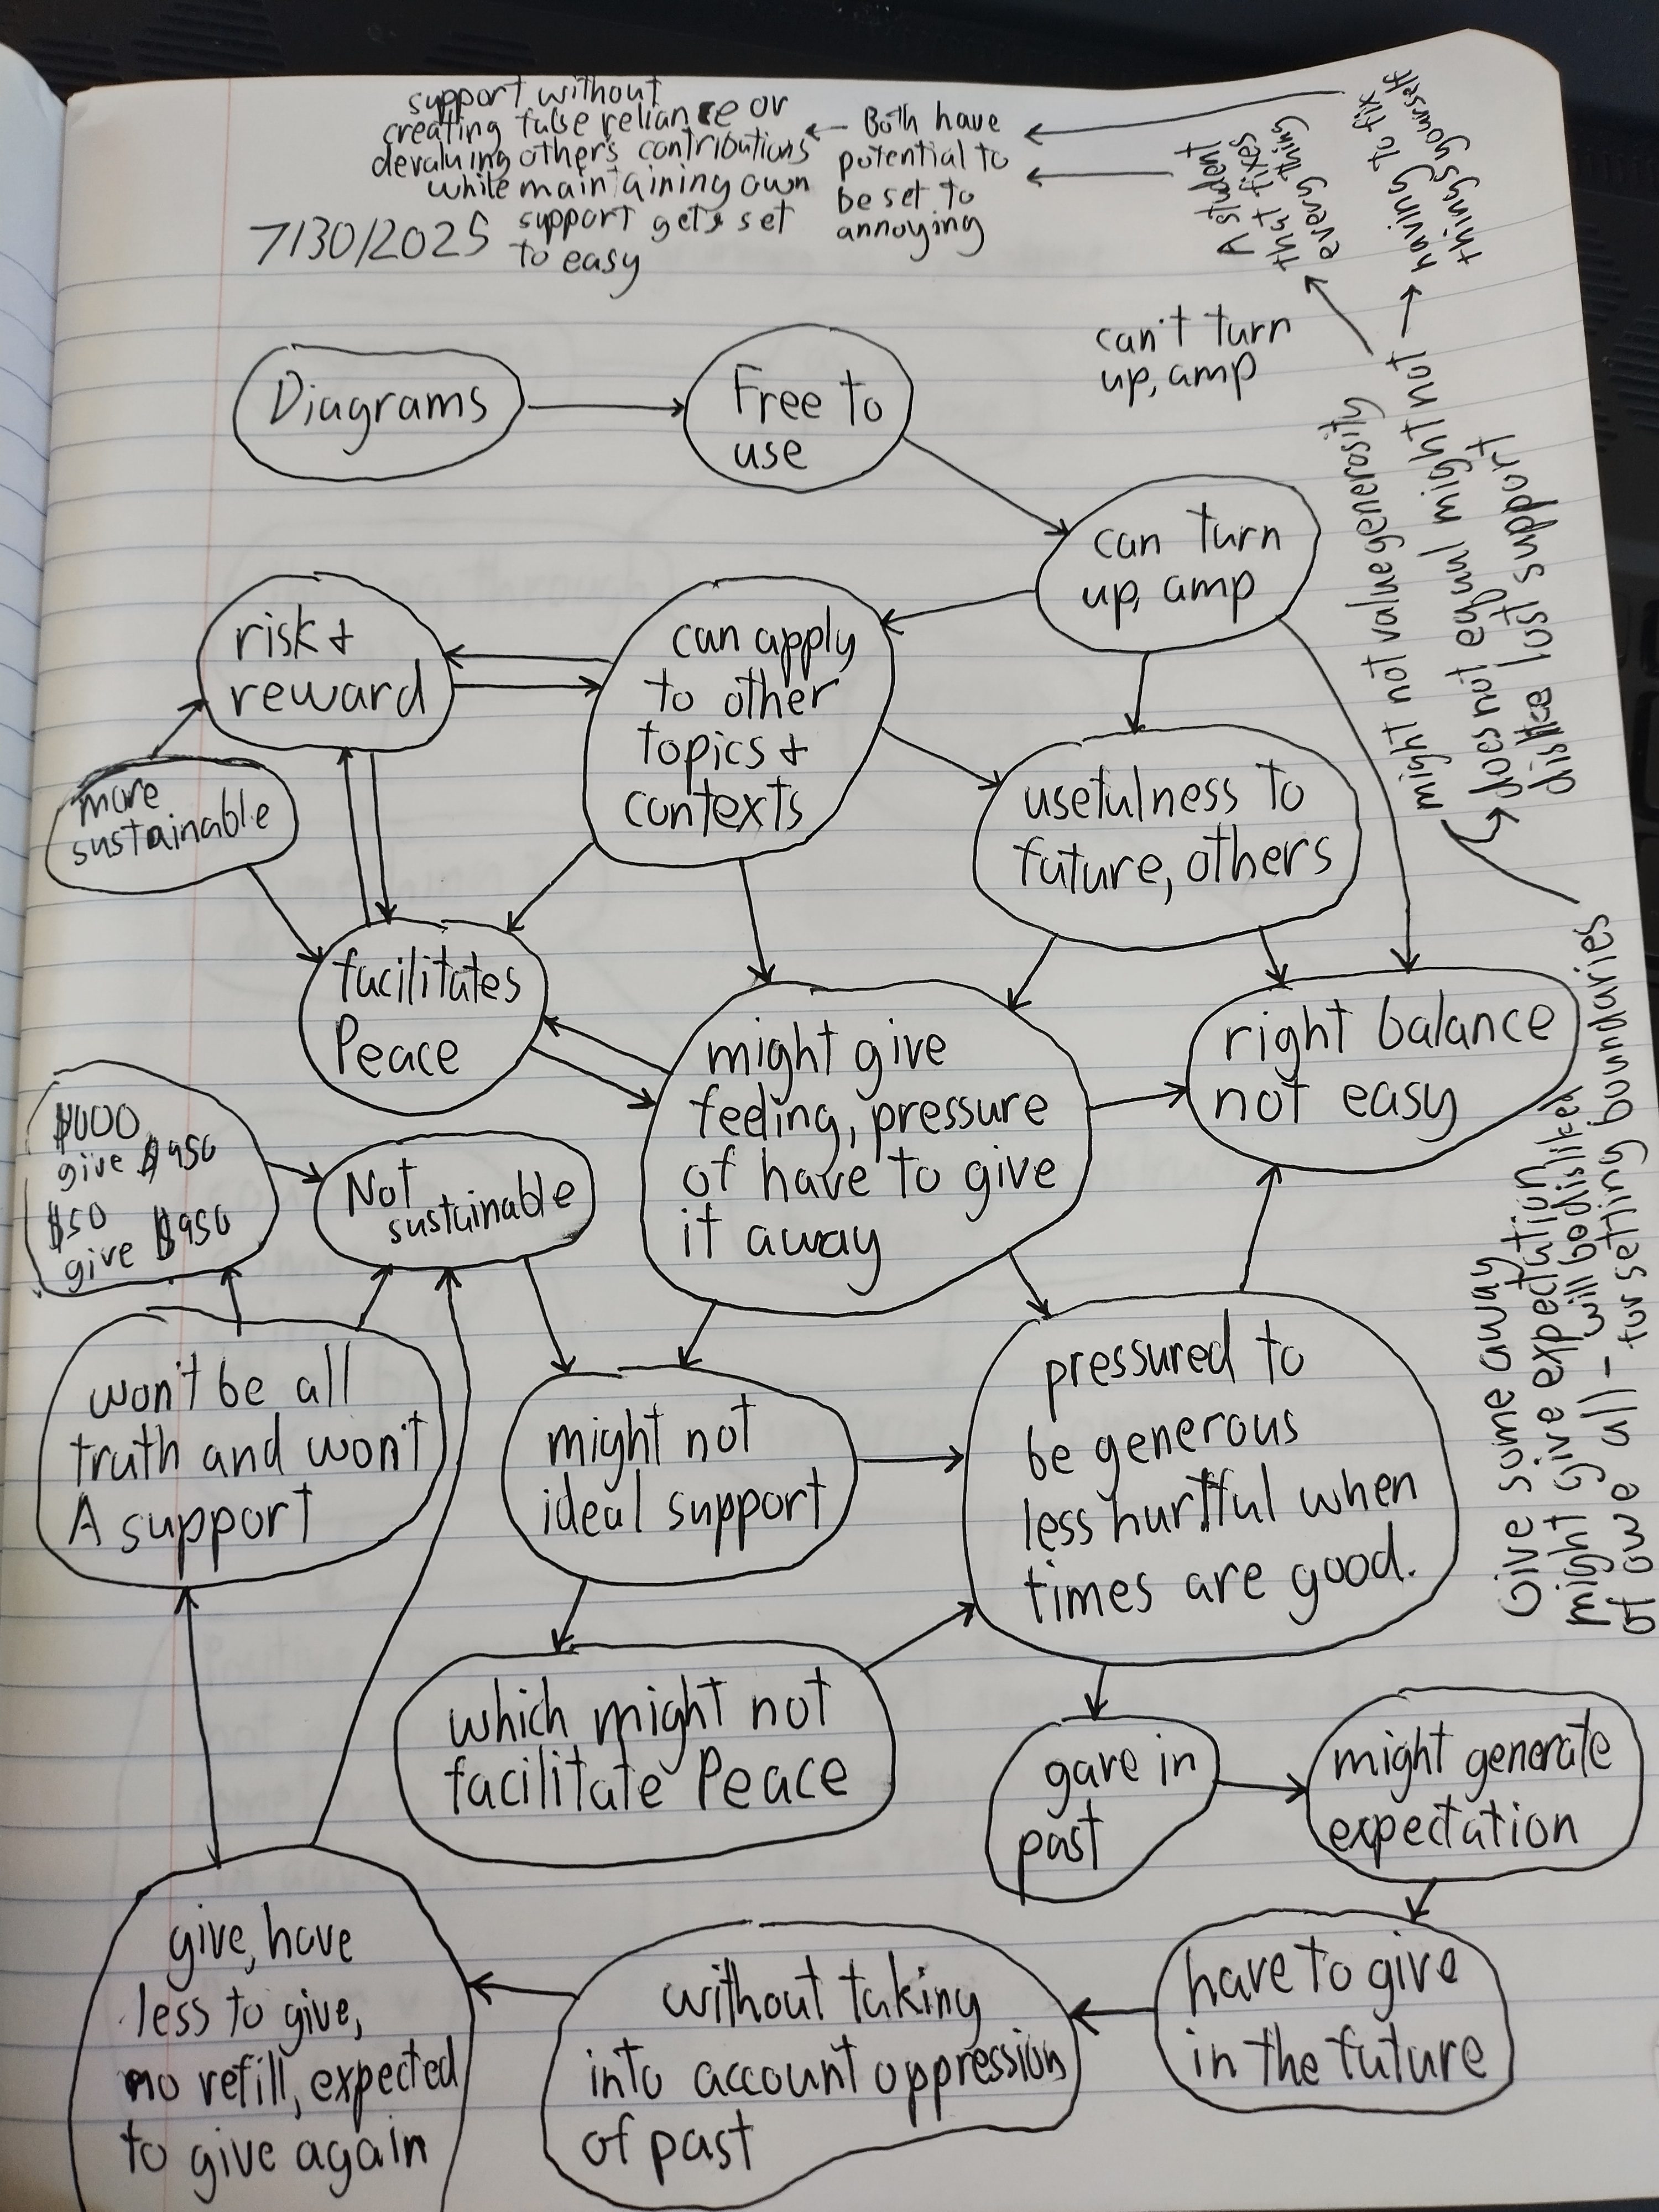 support without
creating false reliance or
devaluing others contributions
while maintaining own
support gets set
to easy
7/30/2025
Both have
potential to
be set to
annoying
A student
that fixes
every thing
having to fix
things yourself
can't turn
up, amp
Diagrams
Free to
use
can turn
up, amp
might not value generosity
does not equal might not
dislike lost support
risk +
reward
can apply
to other
topics +
contexts
more
sustainable
usefulness to
future, others
facilitates
Peace
might give
feeling, pressure
of have to give
it away
right balance
not easy
give $950
$50
give $950
Not
sustainable
Give some away
might give expectation
of owe all - will be disliked
for setting boundaries
won't be all
truth and won't
A support
might not
ideal support
pressured to
be generous
less hurtful when
times are good.
which might not
facilitate Peace
gave in
past
might generate
expectation
give, have
less to give,
no refill, expected
to give again
without taking
into account oppression
of past
have to give
in the future